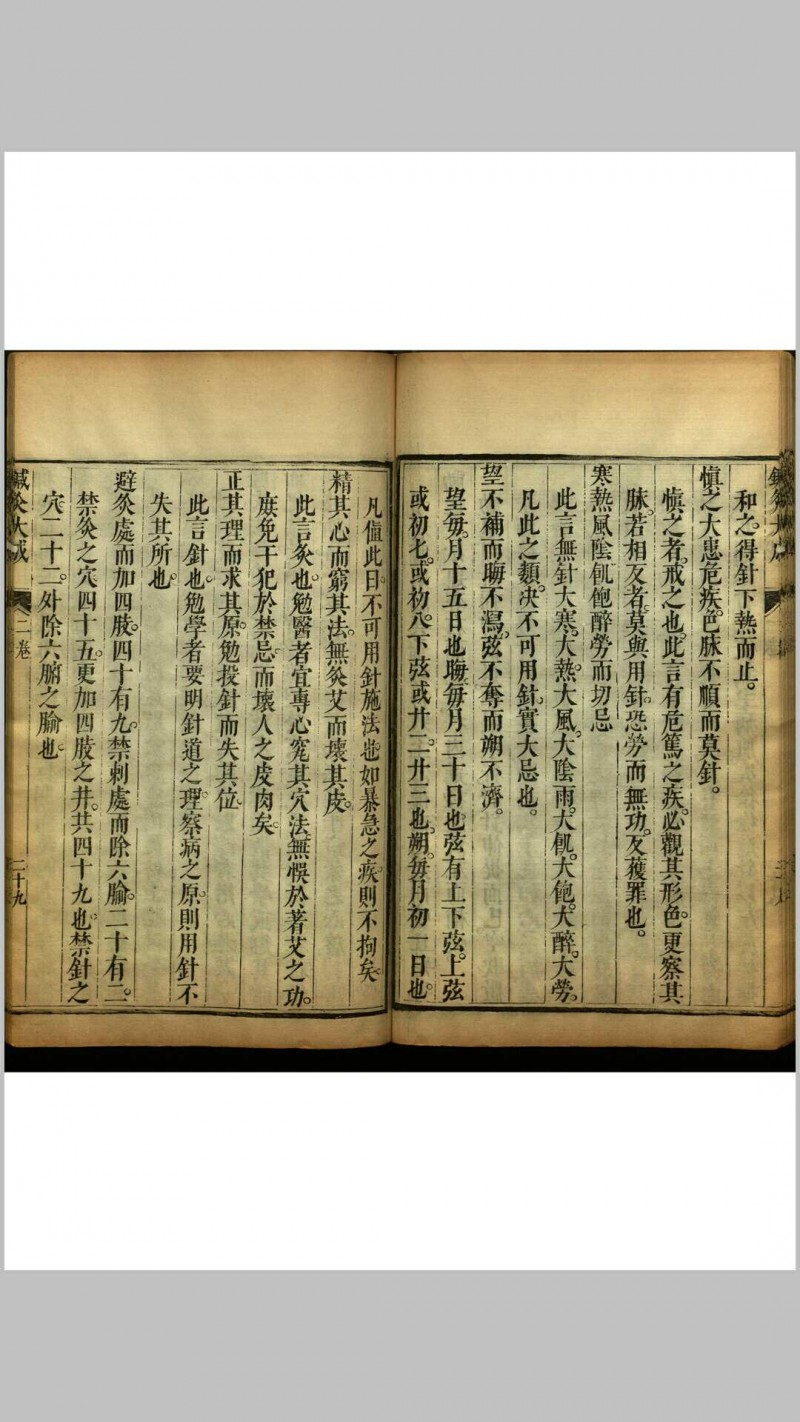 和之得針下熱而止。
慎之大患危疾。色脉不順而莫針。
慎之者。戒之也。此言有危篤之疾。必觀其形色。更察其
脉。若相反者。莫與用針。恐勞而無功。反獲罪也。
寒熱風陰飢飽醉勞而切忌
此言無針大寒。大熱。大風。大陰雨。大飢。大飽。大醉。大勞。
凡此之類。决不可用針。實大忌也。
望不補而晦不瀉。弦不奪而朔不濟。
望每月十五日也晦每月三十日也弦有上下弦。上弦
或初七。或初八。下弦或廿二。廿三也。朔。每月初一日也。
凡值此日。不可用針施法也。如暴急之疾。則不拘矣。
精其心而窮其法。無灸艾而壞其皮。
此言灸也。勉醫者宜專心究其穴法。無悞於著艾之功。
庶免干犯於禁忌。而壞人之皮肉矣。
正其理而求其原。勉投針而失其位。
此言針也。勉學者要明針道之理。察病之原。則用針不
失其所也。
避灸處而加四肢。四十有九。禁刺處而除六腧。二十有二。
禁灸之穴四十五。更加四肢之井。共四十九也。禁針之
穴二十二。外除六腑之腧也。
鍼灸大成
二卷
二十九